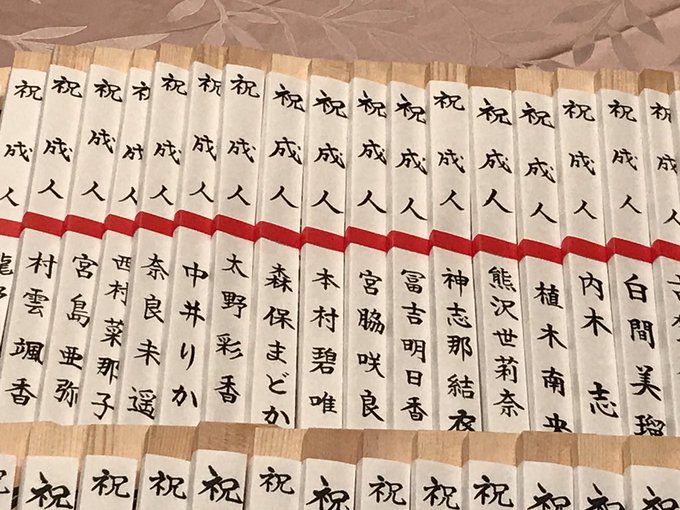 祝成人
祝成人 白間美瑠
祝成人 内木志
祝成人 植木南央
祝成人 熊沢世莉奈
祝成人 神志那結衣
祝成人 冨吉明日香
祝成人 宮脇咲良
祝成人 本村碧唯
祝成人 森保まどか
祝成人 太野彩香
祝成人 中井りか
祝成人 奈良未遥
祝成人 西村菜那子
祝成人 宮島亜弥
祝成人 村雲颯香
祝成人 龍
祝
祝
祝
祝
祝
祝
祝
祝
祝
祝
祝
祝